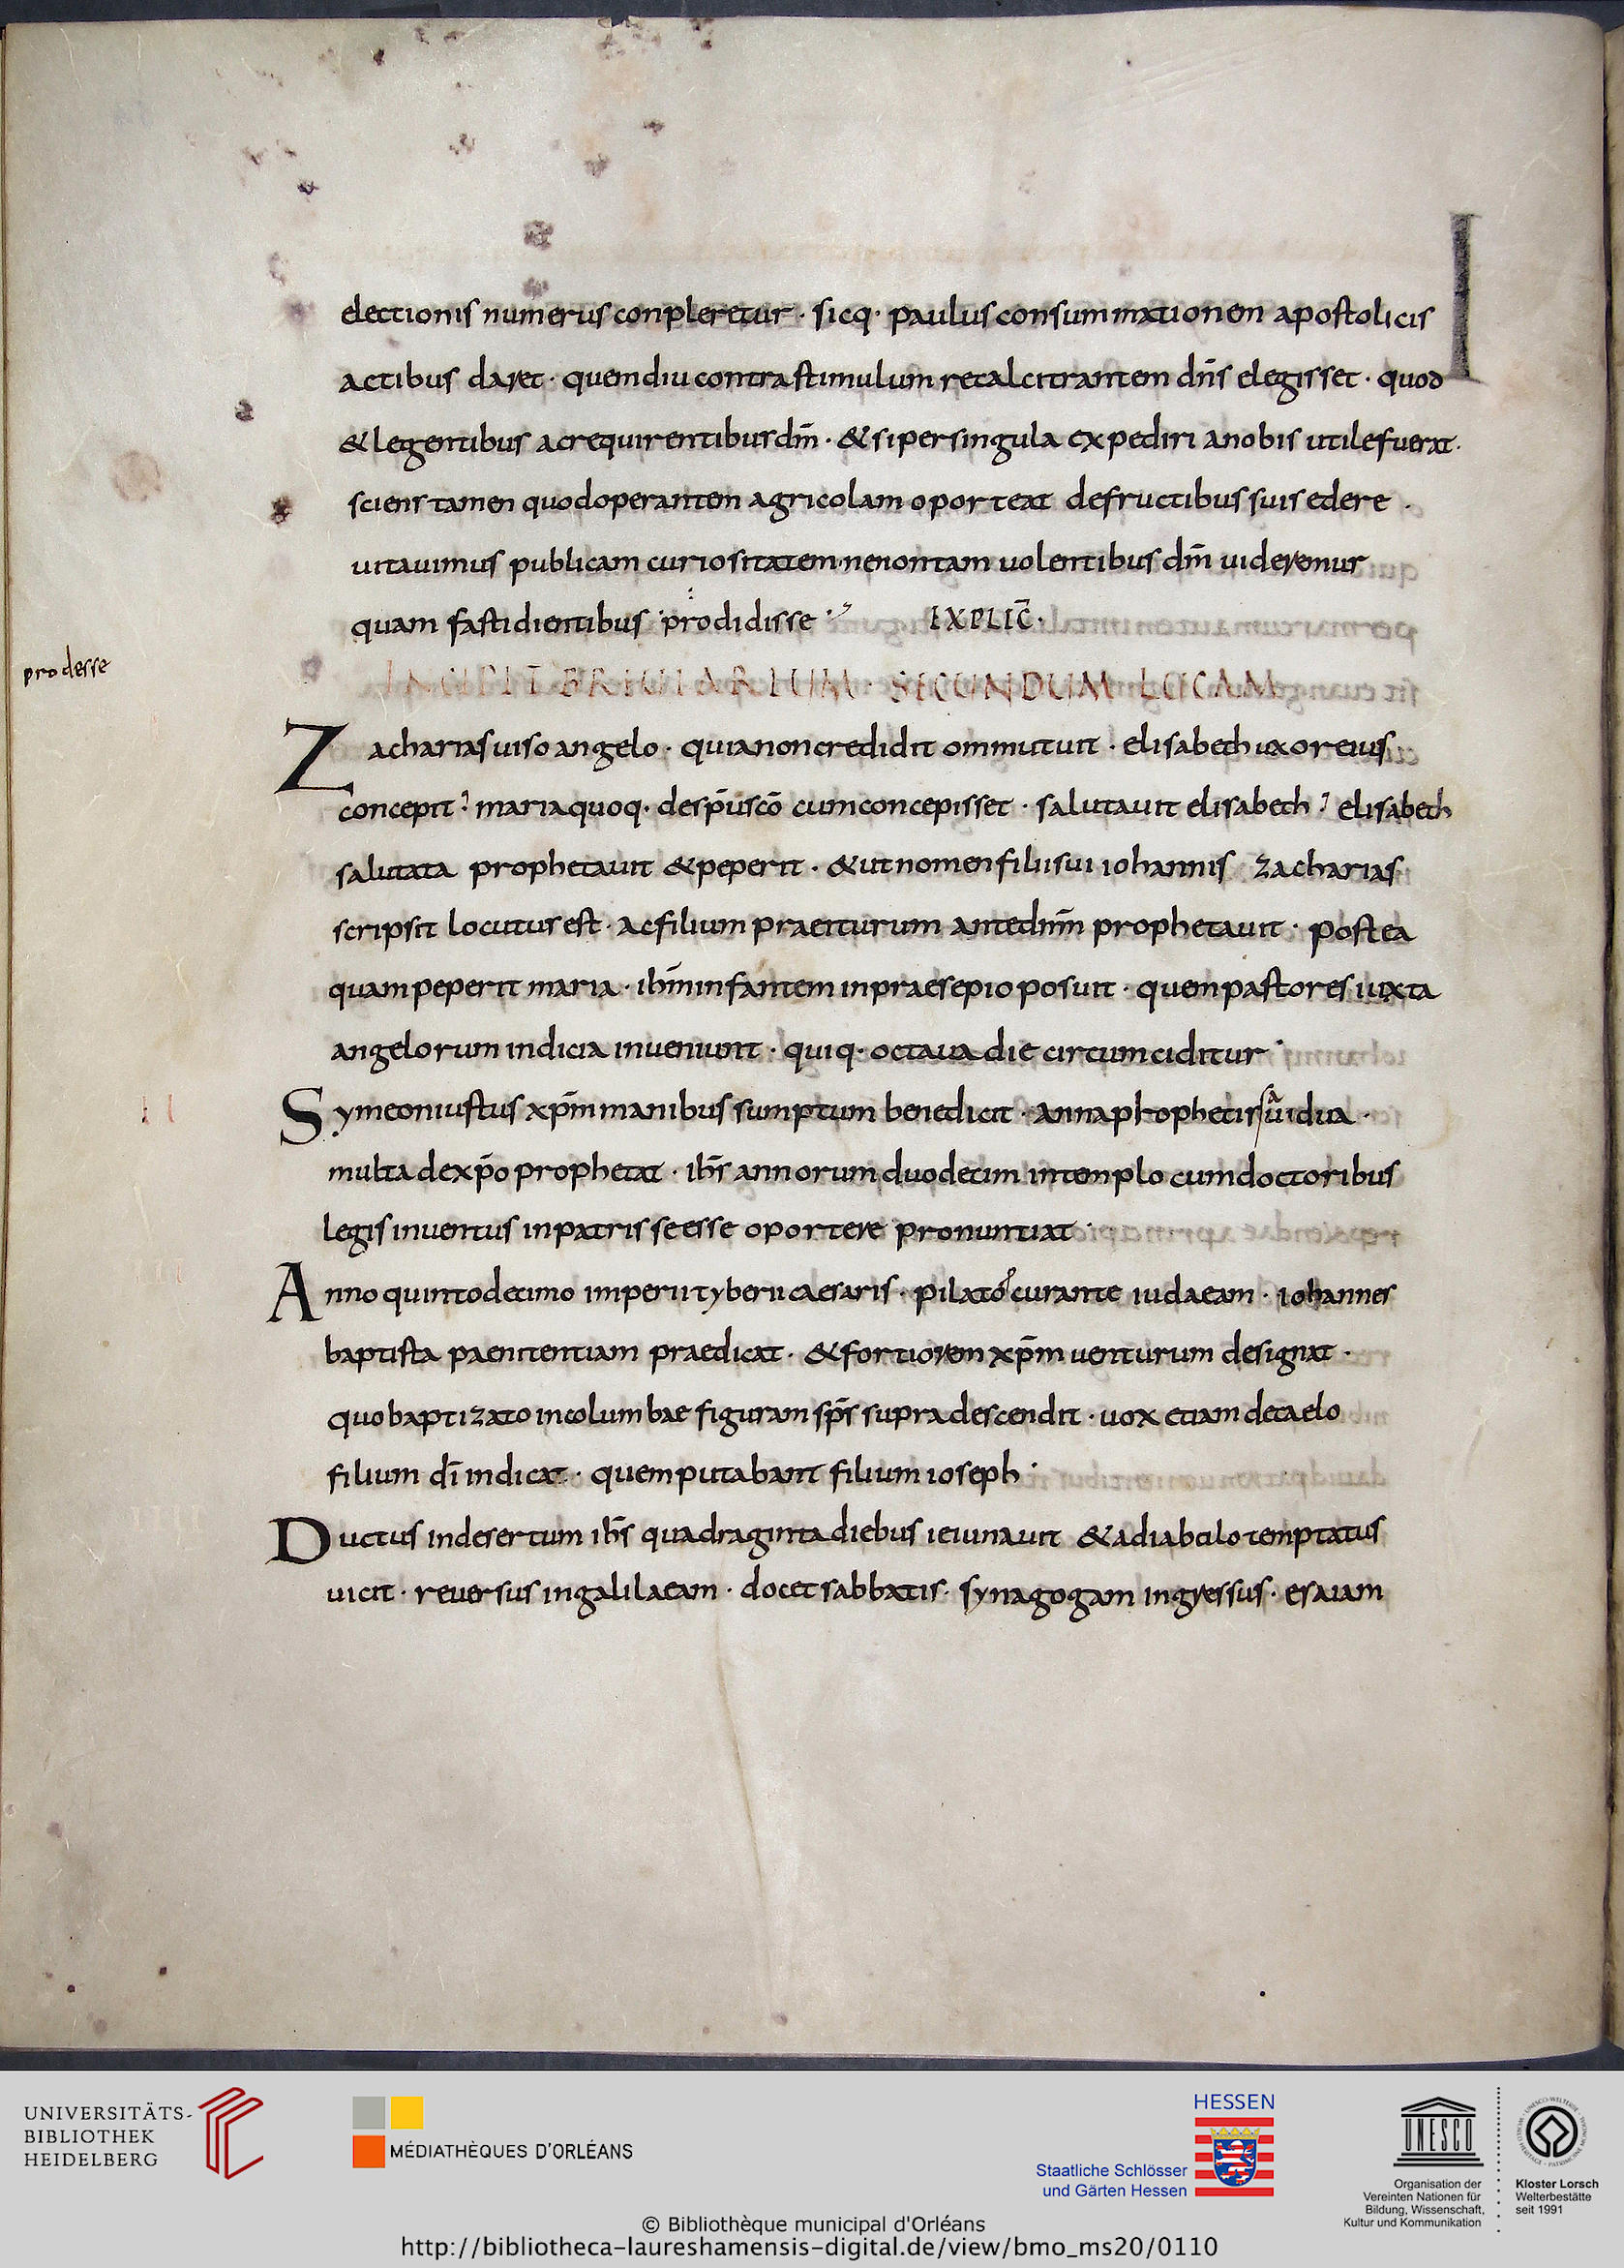 electionis numerus conpleretur · sicq· paulus consummationem apostolicis
actibus daret · quem diu contra stimulum recalcitrantem dn̄s elegisset · quod
& legentibus ac requirentibus dm̄ · & si per singula expediri a nobis utile fuerat ·
sciens tamen quod operantem agricolam oporteat de fructibus suis edere ·
uitauimus publicam curiositatem · ne non tam uolentibus dm̄ uideremur
quam fastidientibus prodidisse EXPLIC̄ ·
prodesse
INCIPIT BREUIARIUM · SECUNDUM LUCAM
Zacharias uiso angelo · quia non credidit ommutuit · elisabeth uxor eius
concepit maria quoq· de sp̄u sc̄o cum concepisset · salutauit elisabeth elisabeth
salutata prophetauit & peperit · & ut nomen filii sui iohannis zacharias
scripsit locutus est · ac filium praeiturum ante dnm̄ prophetauit · postea
quam peperit maria · ihm̄ infantem in praesepio posuit · quem pastores iuxta
angelorum indicia inueniunt · quiq· octaua die circumciditur ·
II
Symeon iustus xp̄m manibus sumptum benedicit · anna prophetissa uidua ·
multa de xp̄o prophetat · ihs̄ annorum duodecim in templo cum doctoribus
legis inuentus in patris se esse oportere pronuntiat ·
III
Anno quintodecimo imperii tyberii caesaris · pilato curante iudaeam · iohannes
baptista paenitentiam praedicat · & fortiorem xp̄m uenturum designat ·
quo baptizato in columbae figuram sp̄s supra descendit · uox etiam de caelo
filium dī indicat · quem putabant filium ioseph ·
Ductus in desertum ihs̄ quadraginta diebus ieiunauit & a diabulo temptatus
uicit · reuersus in galilaeam · docet sabbatis · synagogam ingressus · esaiam
UNIVERSITÄTS-
BIBLIOTHEK
HEIDELBERG
MÉDIATHÈQUES D'ORLÉANS
HESSEN
Staatliche Schlösser
und Gärten Hessen
UNESCO
Organisation der
Vereinten Nationen für
Bildung, Wissenschaft,
Kultur und Kommunikation
Kloster Lorsch
Welterbestätte
seit 1991
© Bibliothèque municipal d'Orléans
http://bibliotheca-laureshamensis-digital.de/view/bmo_ms20/0110